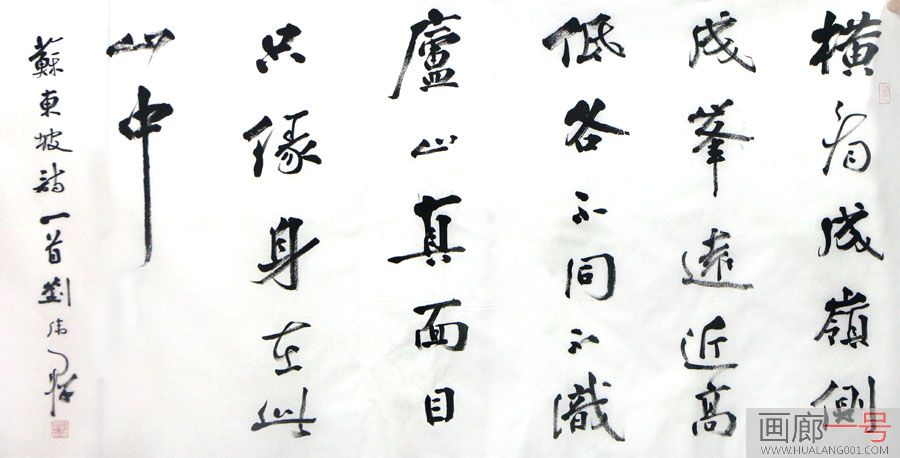 橫看成嶺側
成峯遠近高
低各不同不識
廬山真面目
只緣身在此
山中
蘇東坡詩一首劉
画廊一号
WWW.HUALANG001.COM